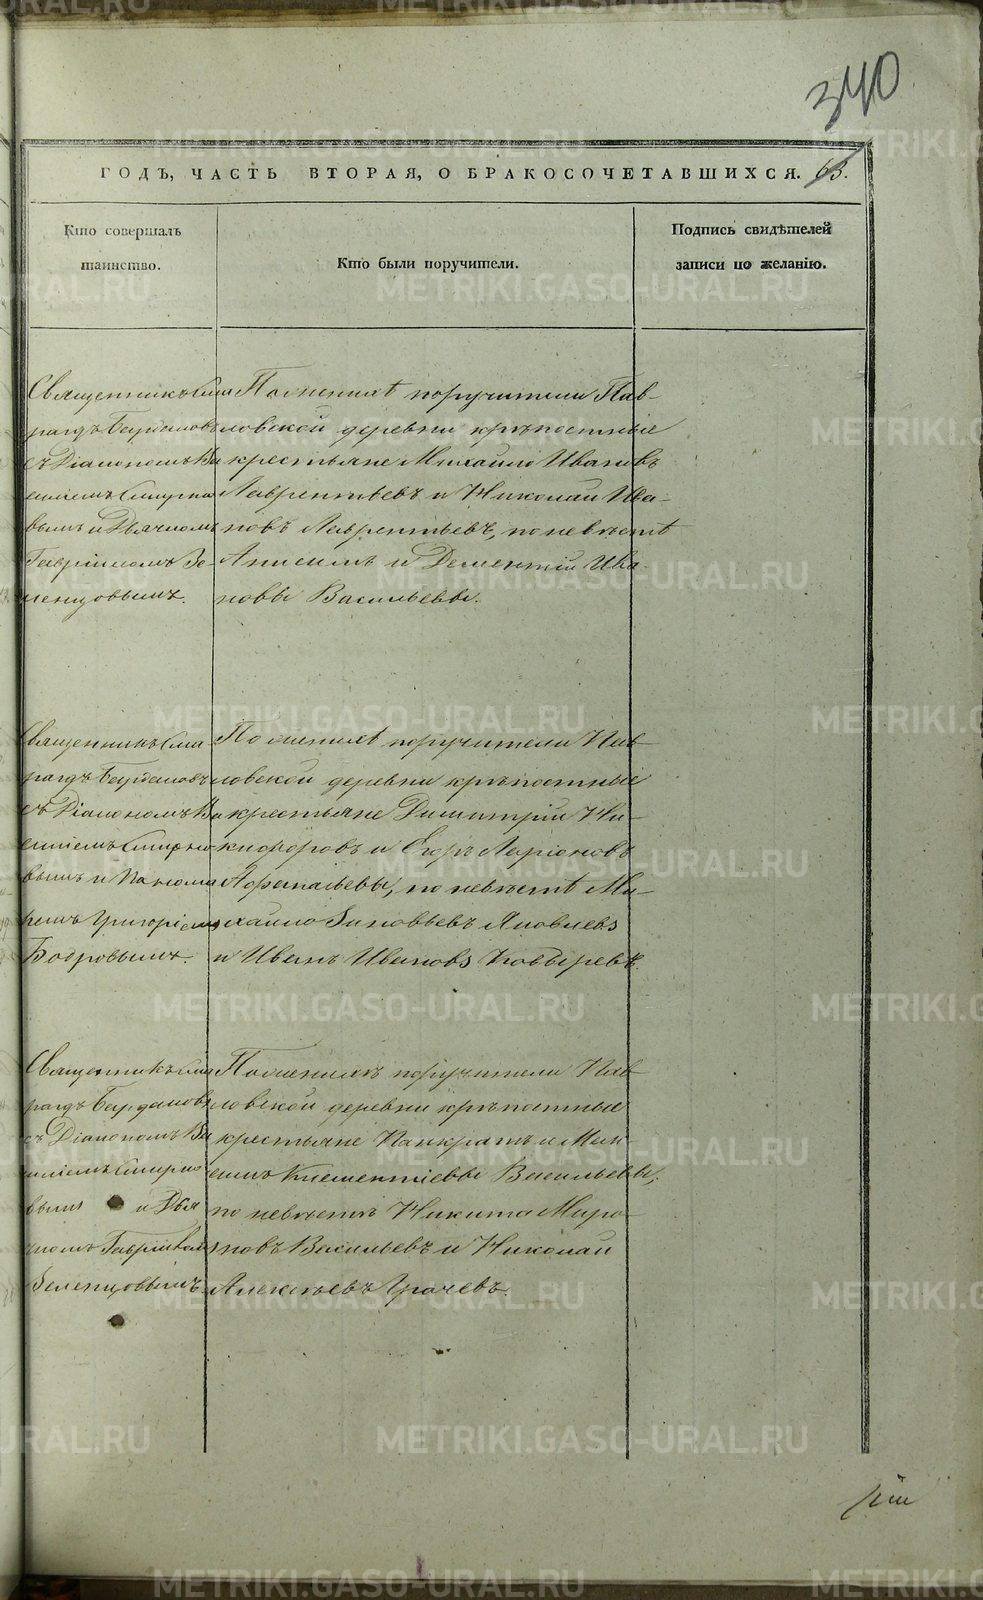 340
ГОДЪ, ЧАСТЬ ВТОРАЯ, О БРАКОСОЧЕТАВШИХСЯ. 63.
Кто совершалъ
таинство.
Кто были поручители.
Подпись свидѣтелей
записи по желанію.
Священникъ Сма
рагдъ Бурдановъ
съ Діакономъ Ва
силіемъ Смирно
вымъ и Дьячкомъ
Гавріиломъ Зе-
ленцовымъ.
По женихѣ поручители Пав-
ловской деревни крѣпостные
крестьяне Михайло Ивановъ
Лаврентьевъ и Николай Ива-
новъ Лаврентьевъ, по невѣстѣ
Анисимъ и Дементій Ива-
новы Васильевы.
Священникъ Сма
рагдъ Бурдановъ
съ Діакономъ Ва
силіемъ Смирно
вымъ и Поно­ма
ремъ Григоріемъ
Бобровымъ.
По женихѣ поручители Пав-
ловской деревни крѣпостные
крестьяне Димитрій Ни-
кифоровъ и Егоръ Ларіоновъ
Афонасьевы, по невѣстѣ Ми-
хайло Зиновьевъ Яковлевъ
и Иванъ Ивановъ Ковыревъ.
Священникъ Сма
рагдъ Бурдановъ
съ Діакономъ Ва
силіемъ Смирно
вымъ и Дья
чкомъ Гавріиломъ
Зеленцовымъ.
По женихѣ поручители Пав
ловской деревни крѣпостные
крестьяне Панкратъ и Мак
симъ Клементіевы Васильевы,
по невѣстѣ Никита Миро
новъ Васильевъ и Николай
Алексѣевъ Грачевъ.
METRIKI.GASO-URAL.RU